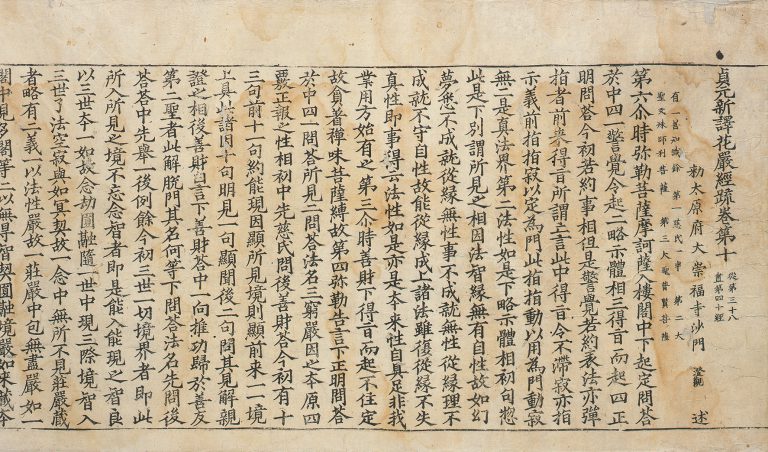 貞元新譯花嚴經疏卷第十 從第三十八盡第四十經
勑太原府大崇福寺沙門 澄觀 述
有一善知識餘 第一慈氏一事 第二大
聖文殊師利菩薩 第三大聖普賢菩薩
第六尒時弥勒菩薩摩訶薩入樓閣中下起定問荅
於中四一警覺令起二略示體相三得音而起四正
明問荅今初若約事相但是警覺若約表法亦彈
指者前來得言所謂立言此中得音令不滯寂亦指
示義前指指寂以定為門此指指動以用為門動寂
無二是真法界第二法性如是下略示體相初句惣
此是下別謂所見之相因法智緣無有自性故如幻
夢悉不成就從緣無性事不成就無性從緣理不
成就不守自性故能從緣成上諸法雖復從緣不失
真性即事得云法性如是亦是本來性自具足非我
業用方始有之第三尒時善財下得音而起不住定
故貪著禪味菩薩縛故第四弥勒告言下正明問荅
於中四一問荅所見二問荅法名三窮嚴因之本原四
覈正報之性相初中先慈氏問後善財荅今初有十
三句前十一句約能現因顯所見境則顯前來一一境
上具此諸因十句明見一句顯聞後二句問其見解親
證之相後善財白言下善財荅中一向推功歸於善友
第二聖者此解脫門其名何等下問荅法名先問後
荅荅中先舉一後例餘今初三世一切境界者即此
所入所見之境不忘念智者即是能入能現之智良
以三世本一如故念劫圓融隨一世中現三際境智入
三世了法空寂與如冥契故一念中無所不見莊嚴藏
者略有二義一以法性嚴故一莊嚴中包無盡嚴如一
閣中見多閣等二以無得智契圓融境嚴如來藏本